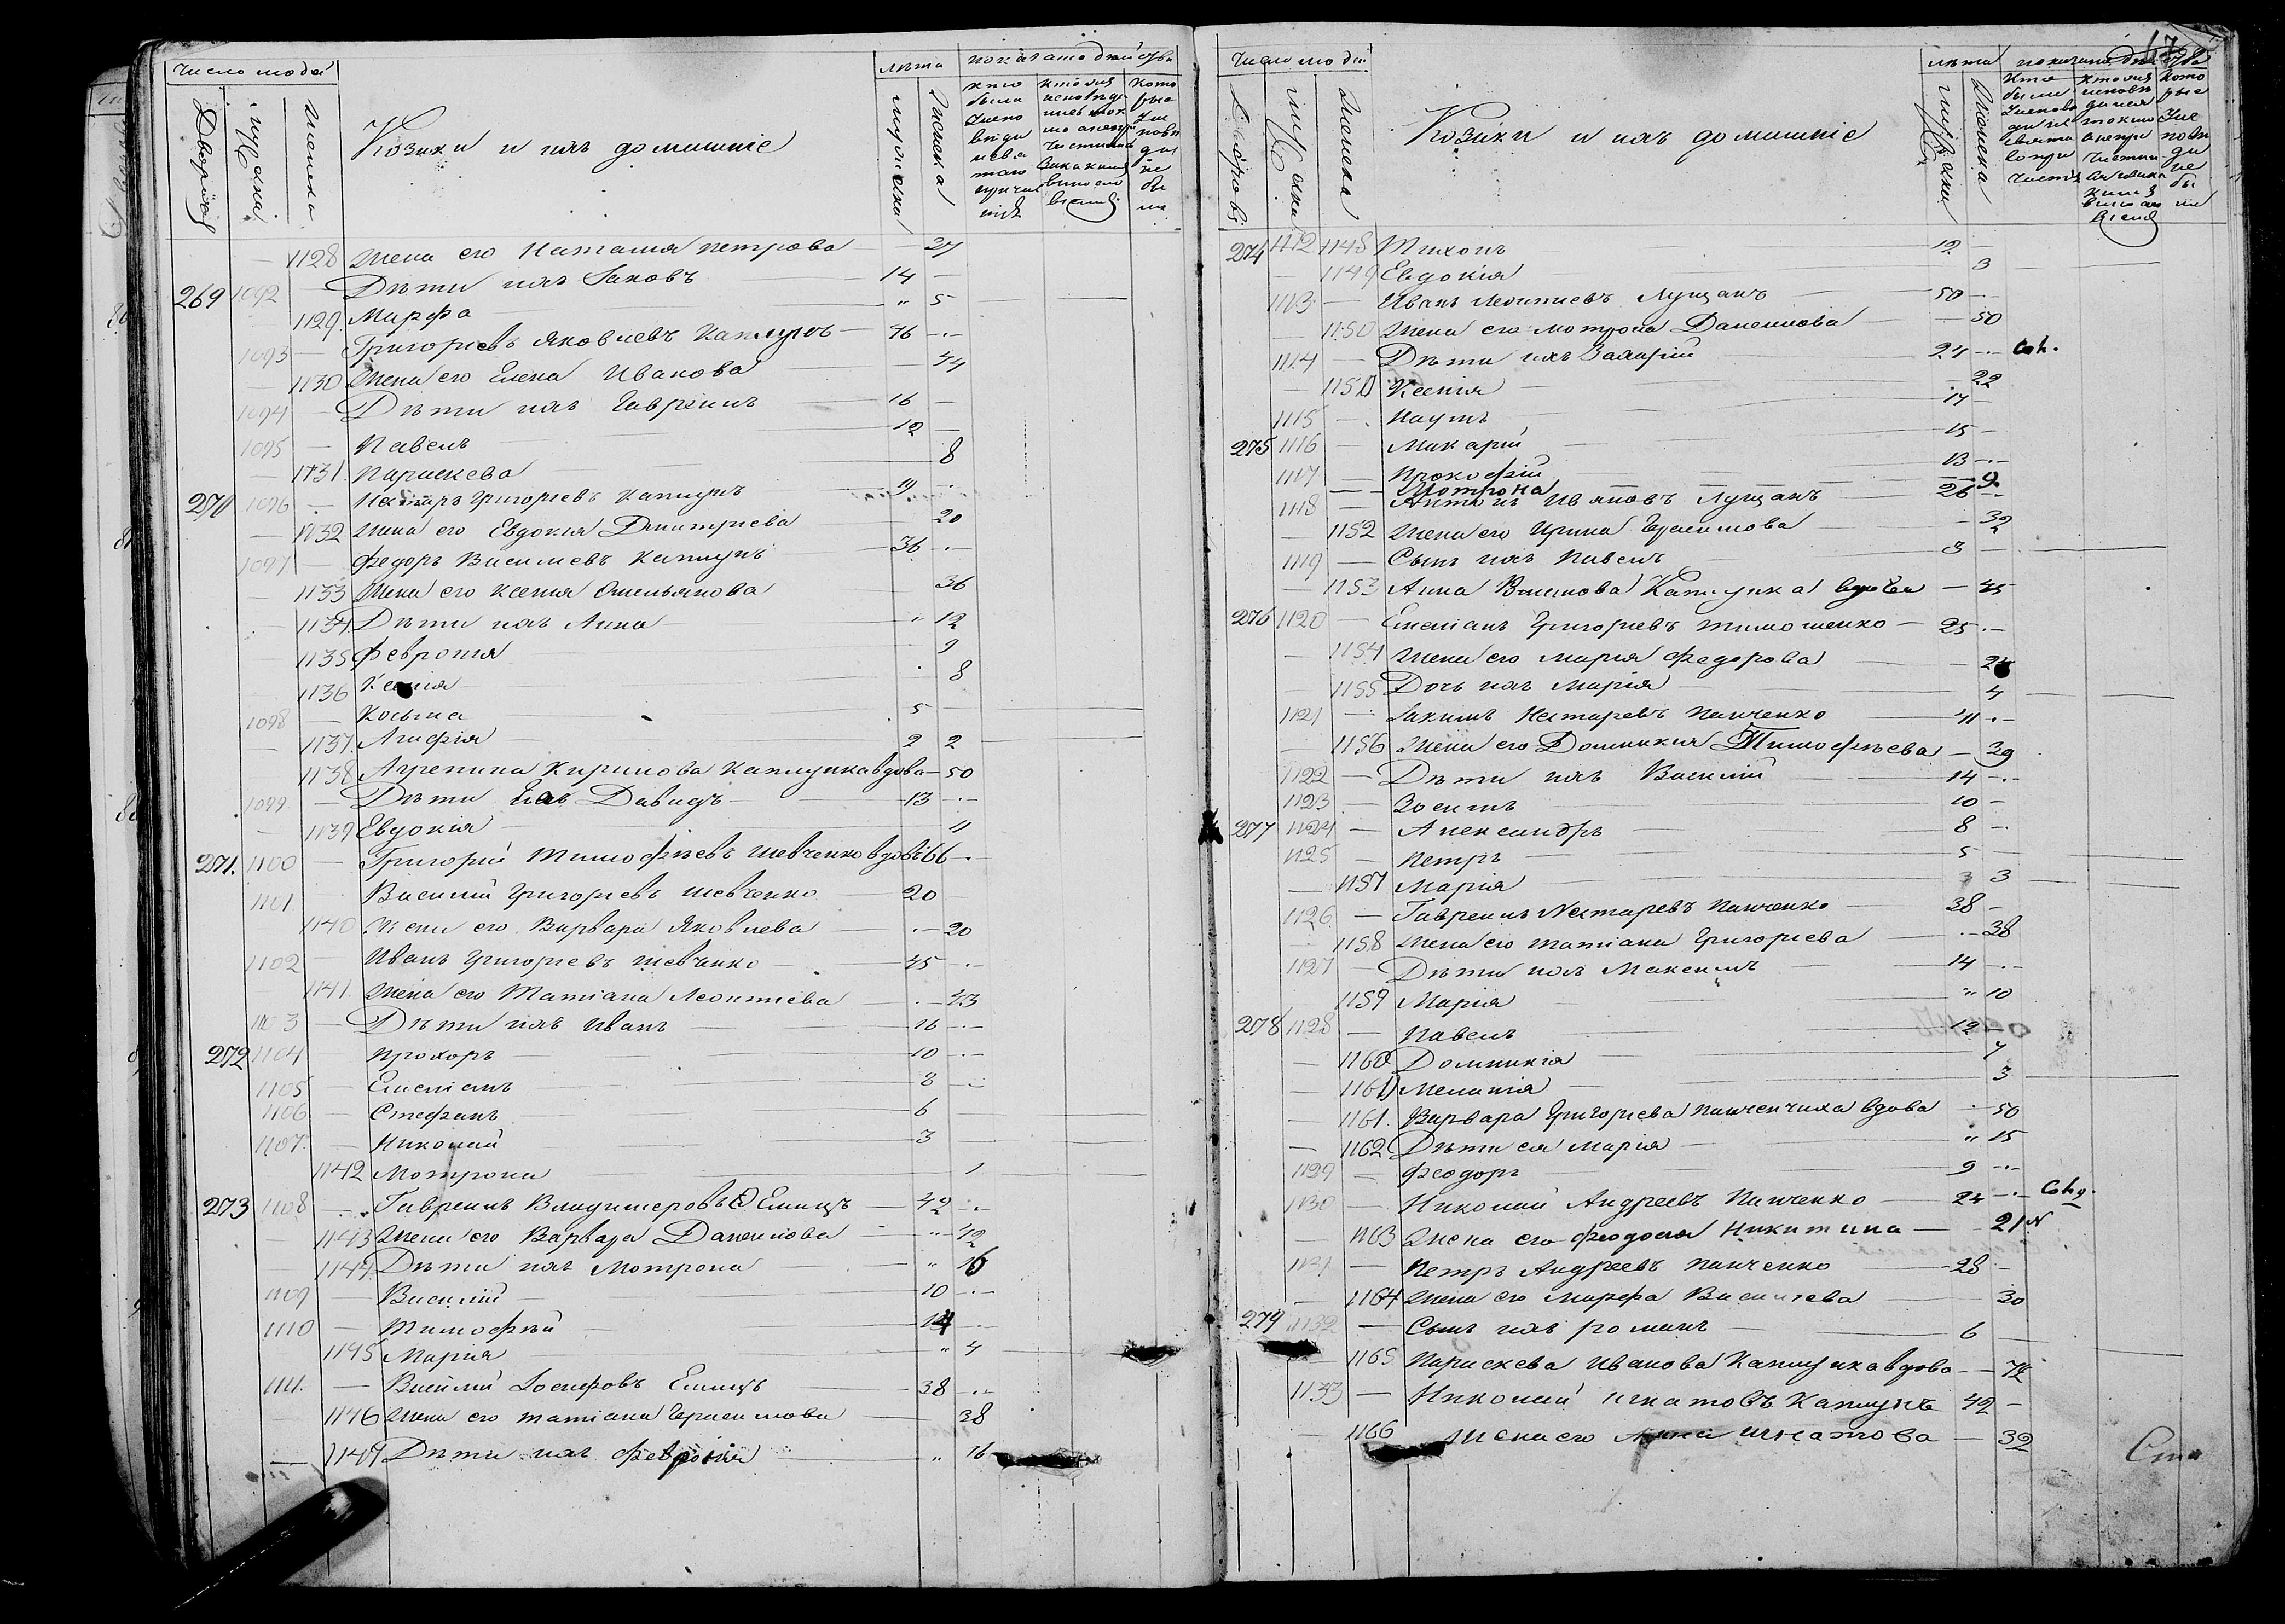 Число людей
Дворовъ
мужска
женска
Козаки и ихъ домашніе
лѣта
мужска
женска
показаніе дѣйства
1128 Жена его Наталія Петрова 27
269 1092 Дѣти ихъ Іаковъ 14
1129. Марфа " 5
1093 Григоріевъ Яковлевъ Каплунъ 46
1130 Жена его Елена Иванова 44
1094 Дѣти ихъ Гавріилъ 16
1095 Павелъ 12
1131 Параскева 8
270 1096 Григоріевъ Каплунъ 19
1132 Жена его Евдокія Димитріева 20
1097 Федоръ Василіевъ Каплунъ 36
1133 Жена его Ксенія Омельянова 36
1134 Дѣти ихъ Анна " 12
1135 Февронія 9
1136 Ксенія 8
1098 Косьма 5
1137 Агафія 2 2
1138 Агрепина Кирилова Каплунка вдова 50
1099 Дѣти Давидъ 13
1139 Евдокія 11
271. 1100 Григорій Тимофѣевъ Шевченко вдовъ 66
1101 Василій Григоріевъ Шевченко 20
1140 Жена его Варвара Яковлева 20
1102 Иванъ Григоріевъ Шевченко 45
1141 Жена его Татіана Леонтіева 43
1103 Дѣти ихъ Иванъ 16
272 1104 Прохоръ 10
1105 Емеліанъ 8
1106 Стефанъ 6
1107 Николай 3
1142 Мотрона 1
273 1108 Гавріилъ Владимеровъ Емецъ 42
1143 Жена его Варвара Данилова " 42
1144 Дѣти ихъ Мотрона " 16
1109 Василій 10
1110 Тимофѣй 14
1145 Марія " 4
1111. Василій Іосифовъ Емецъ 38
1146 Жена его Татіана Герасимова 38
1147 Дѣти ихъ Февронія " 16
67
Число людей
мужска
женска
Козаки и ихъ домашніе
лѣта
мужска
женска
показаніе дѣйства
274 1112 1148 Тихонъ 12
1149 Евдокія 3
1113 Иванъ Леонтіевъ Лущанъ 50
1150 Жена его Мотрона Данилова 50
1114 Дѣти ихъ Захарій 24
1151 Ксенія 22
1115 Наумъ 17
275 1116 Макарій 15
1117 Прокофій 13
Мотрона 9
1118 Антонъ Ивановъ Лущанъ 26
1152 Жена его Ирина Герасимова 32
1119 Сынъ ихъ Павелъ 3
1153 Анна Каплунка вдова 45
276 1120 Емеліанъ Григоріевъ Тимошенко 25
1154 Жена его Марія Федорова
1155 Дочь ихъ Марія 4
1121 Іакимъ Нестаревъ Панченко 41
1156 Жена его Домникія Тимофѣева 39
1122 Дѣти ихъ Василій 14
1123 Зосимъ 10
277 1124 Александръ 8
1125 Петръ 5
1157 Марія 3 3
1126 Гавріилъ Нестаревъ Панченко 38
1158 Жена его Татіана Григоріева 38
1127 Дѣти ихъ Максимъ 14
1159 Марія " 10
278 1128 Павелъ 12
1160 Домникія 7
1161 Меланія 3
1161. Варвара Григорьева Панченчиха вдова 50
1162 Дѣти ея Марія " 15
1129 Феодоръ 9
1130 Николай Андреевъ Панченко 24
1163 Жена его Феодосія Никитина 21
1131 Петръ Андреевъ Панченко 28
1164 Жена его Марфа Василіева 30
279 1132 Сынъ ихъ Романъ 6
1165 Параскева Иванова Каплунка вдова 72
1133 Николай Игнатовъ Каплунъ 42
1166 Жена его Анна Игнатова 32